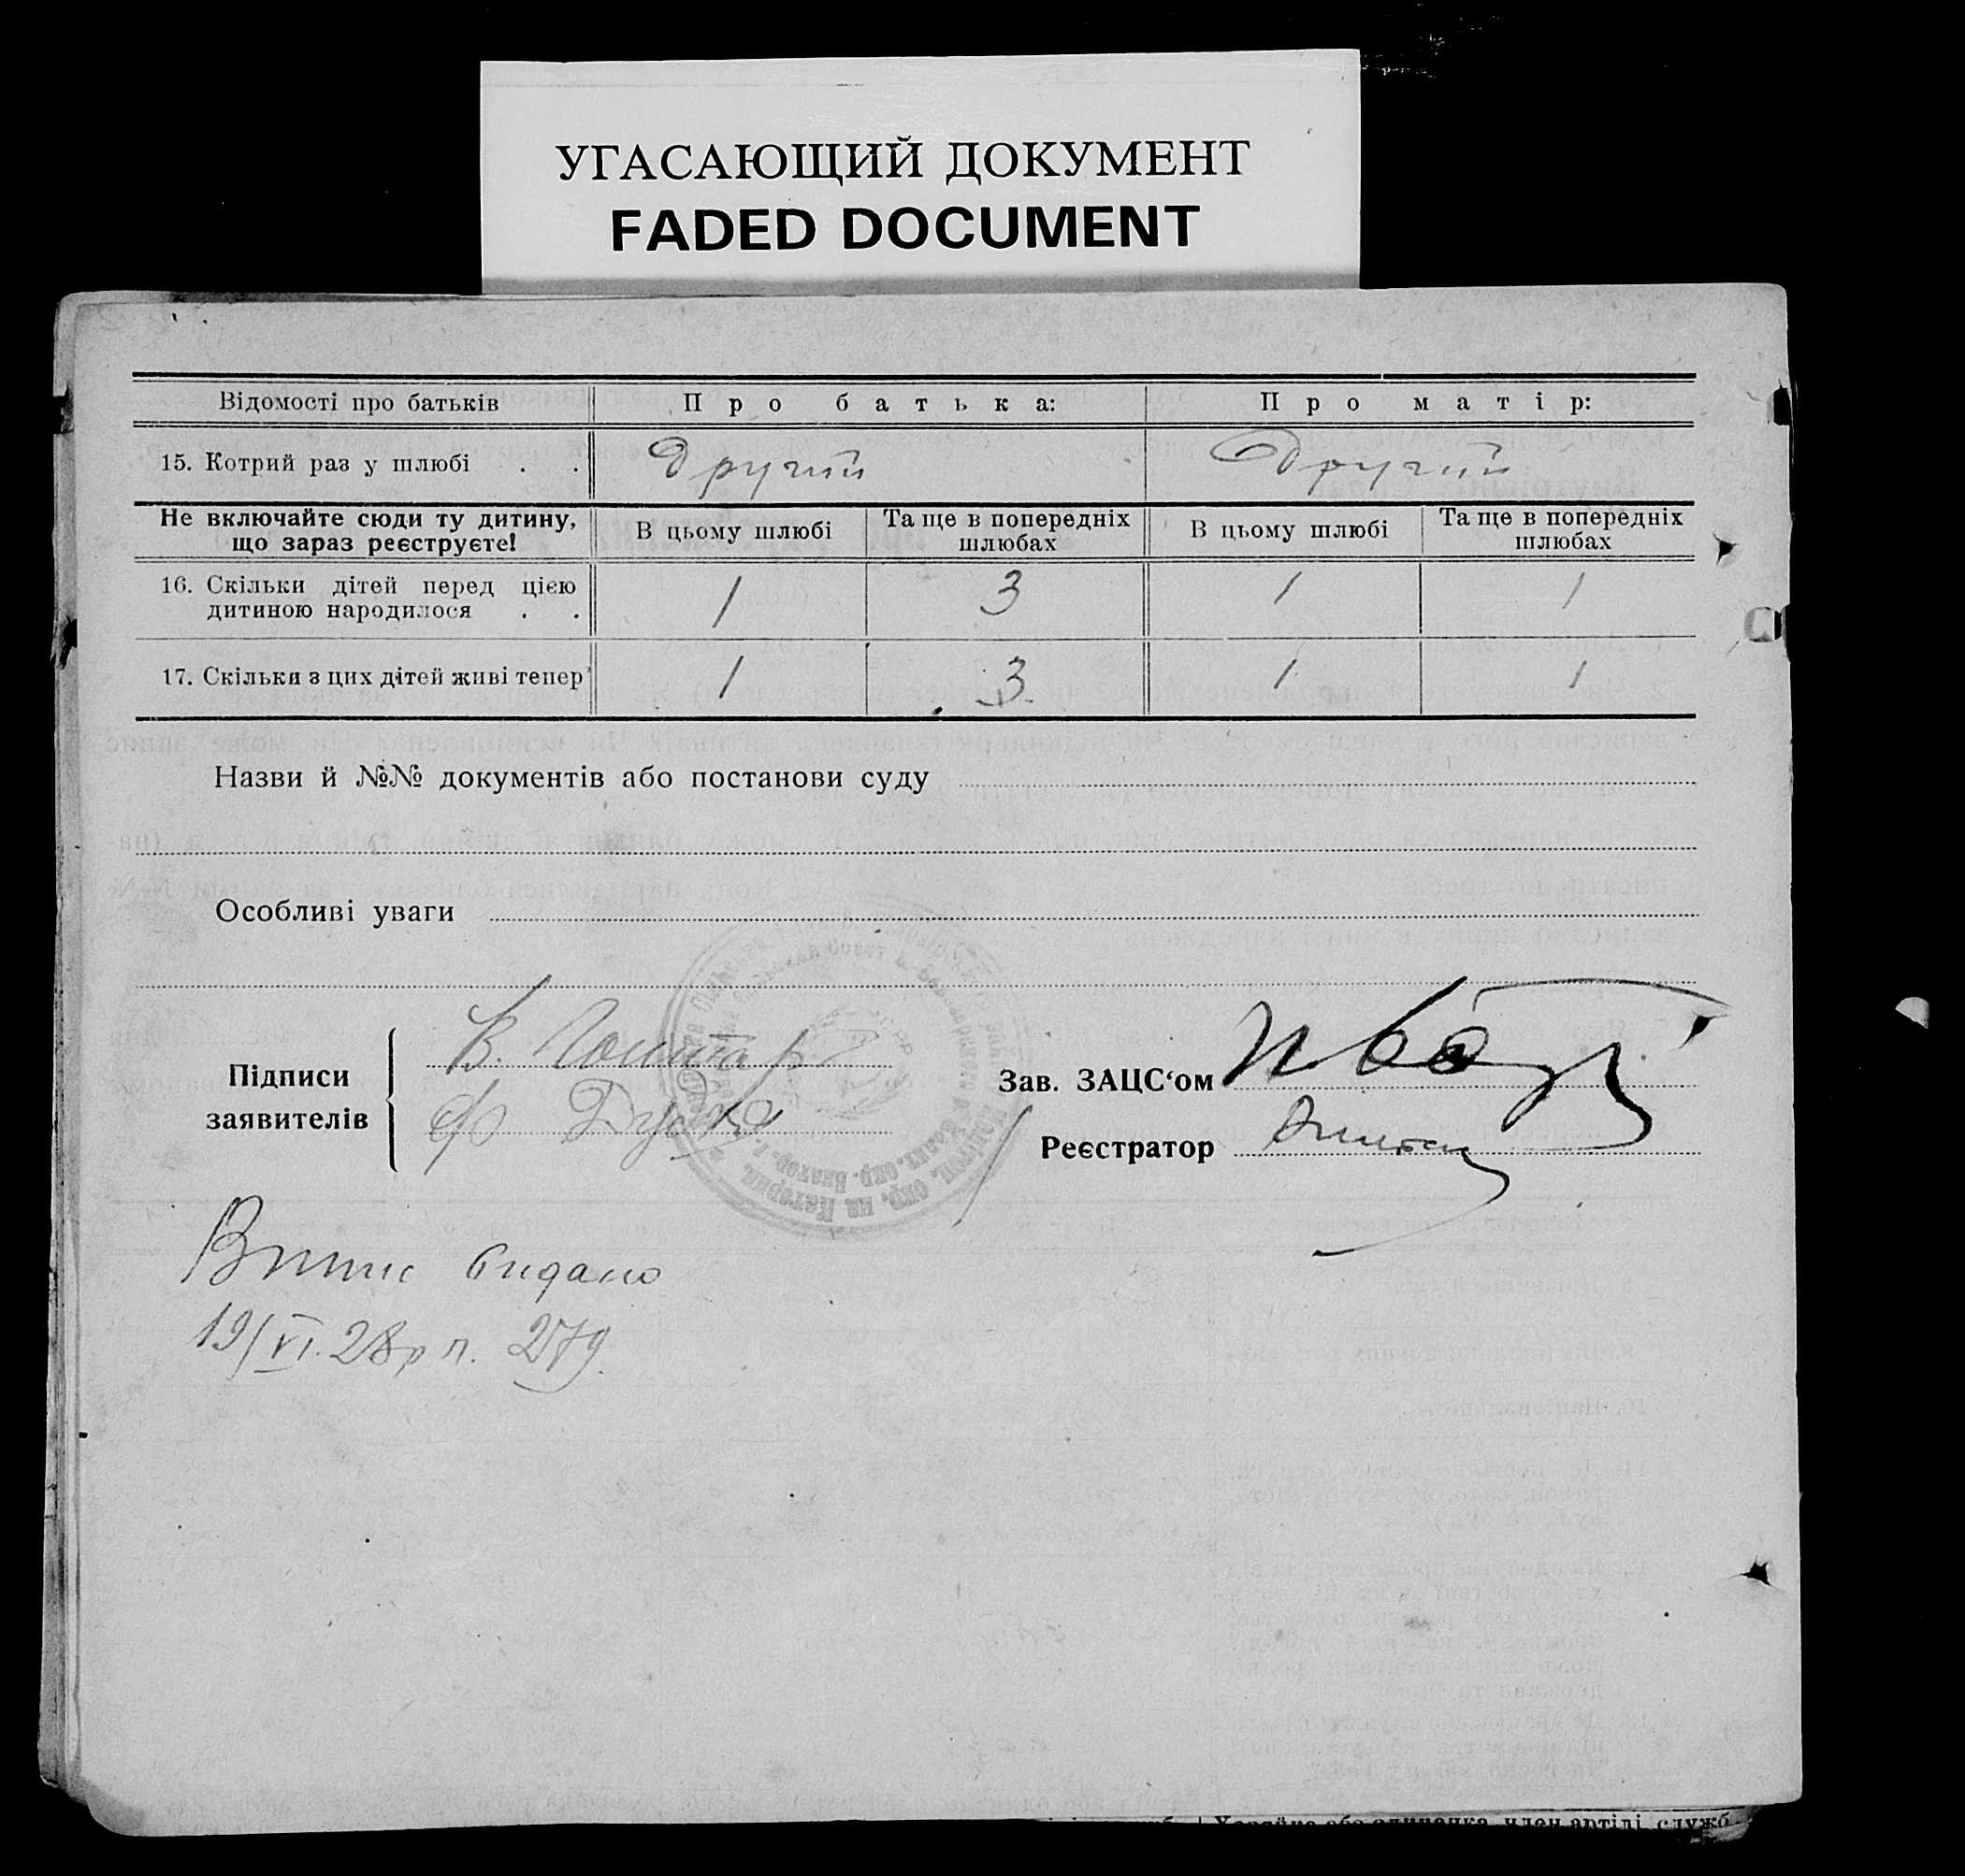 УГАСАЮЩИЙ ДОКУМЕНТ
FADED DOCUMENT
Відомості про батьків Про батька: Про матір:
15. Котрий раз у шлюбі . . Другий Другий
Не включайте сюди ту дитину, що зараз реєструєте! В цьому шлюбі Та ще в попередніх шлюбах В цьому шлюбі Та ще в попередніх шлюбах
16. Скільки дітей перед цією дитиною народилося . . 1 3 1 1
17. Скільки з цих дітей живі тепер 1 3 1 1
Назви й №№ документів або постанови суду
Особливі уваги
Підписи заявителів
В.
Зав. ЗАЦС‘ом
Реєстратор
Витяг видано
19/VI.28р п. 279.
член артілі, служб